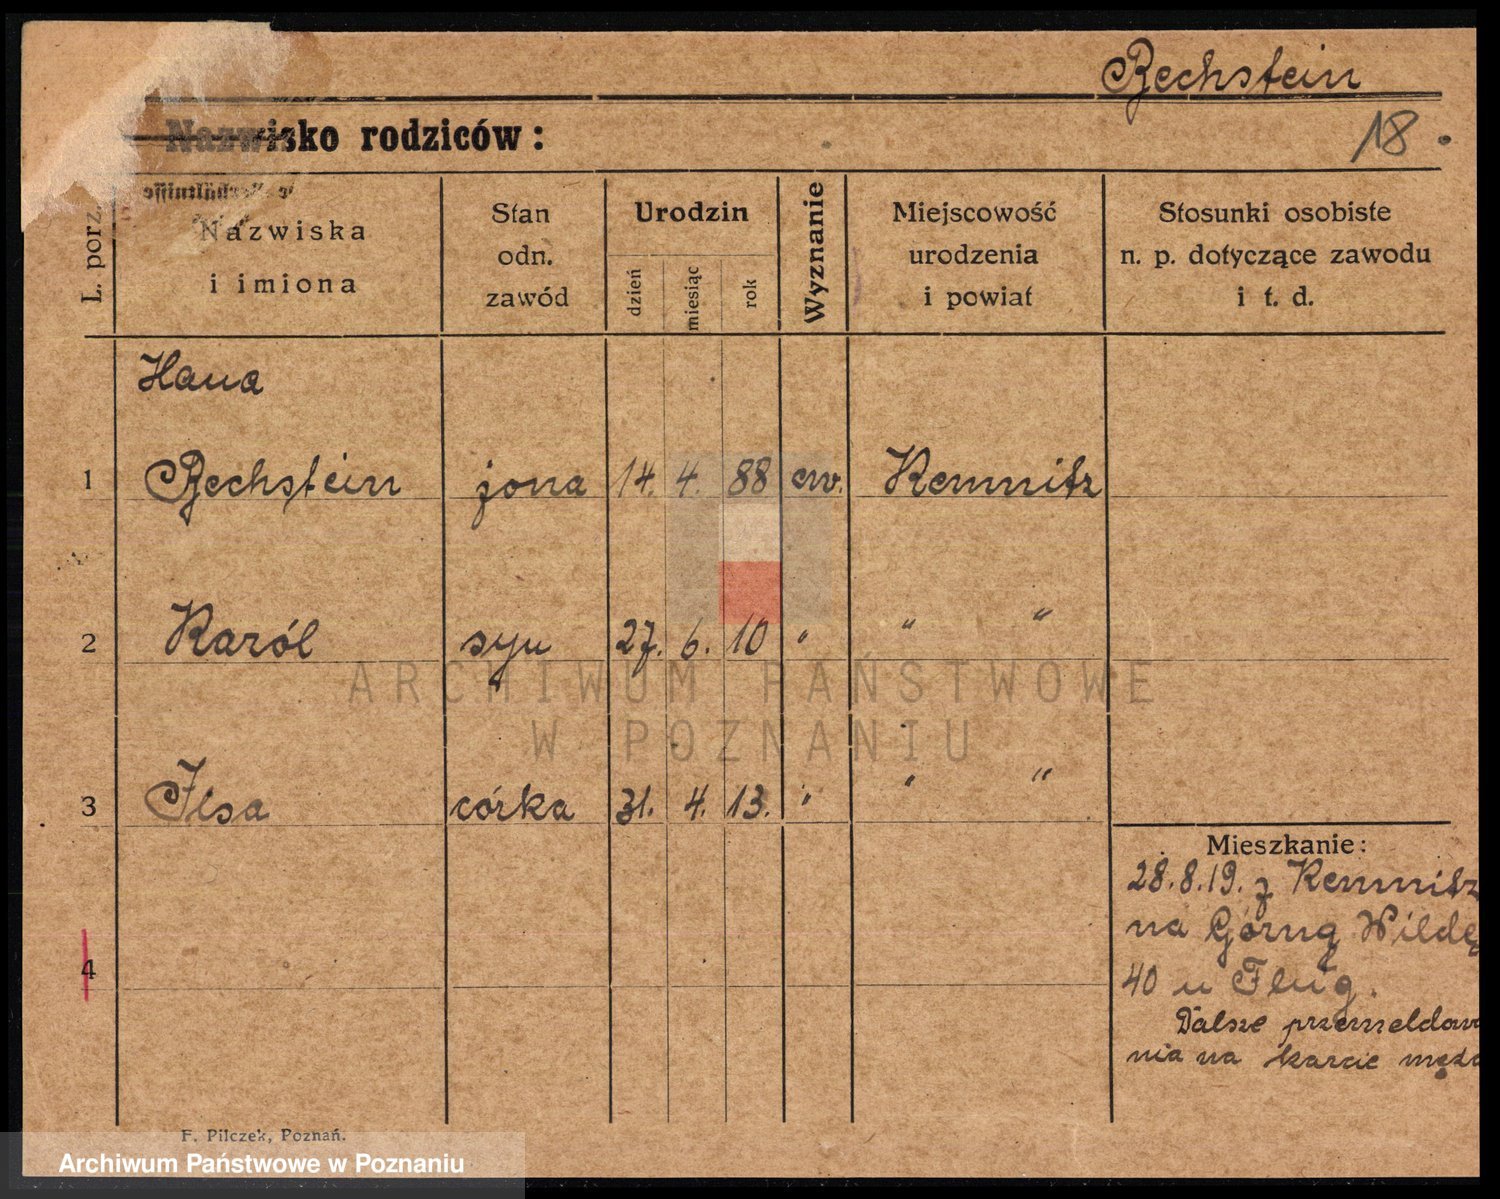 Bechstein
Nazwisko rodziców:
18.
L. porz.
Nazwiska
i imiona
Stan
odn.
zawód
Urodzin
dzień
miesiąc
rok
Wyznanie
Miejscowość
urodzenia
i powiat
Stosunki osobiste
n. p. dotyczące zawodu
i t. d.
Hana
1 Bechstein żona 14. 4. 88 ew. Kemnitz
2 Karól syn 27. 6. 10 " " "
3 Ilsa córka 31. 4. 13. " " "
4
Mieszkanie:
28.8.19. z Kemnitz
na Górną Wildę
40 u Flug.
Dalsze przemeldowa
nia na karcie męża
ARCHIWUM PAŃSTWOWE
W POZNANIU
F. Pilczek, Poznań.
Archiwum Państwowe w Poznaniu